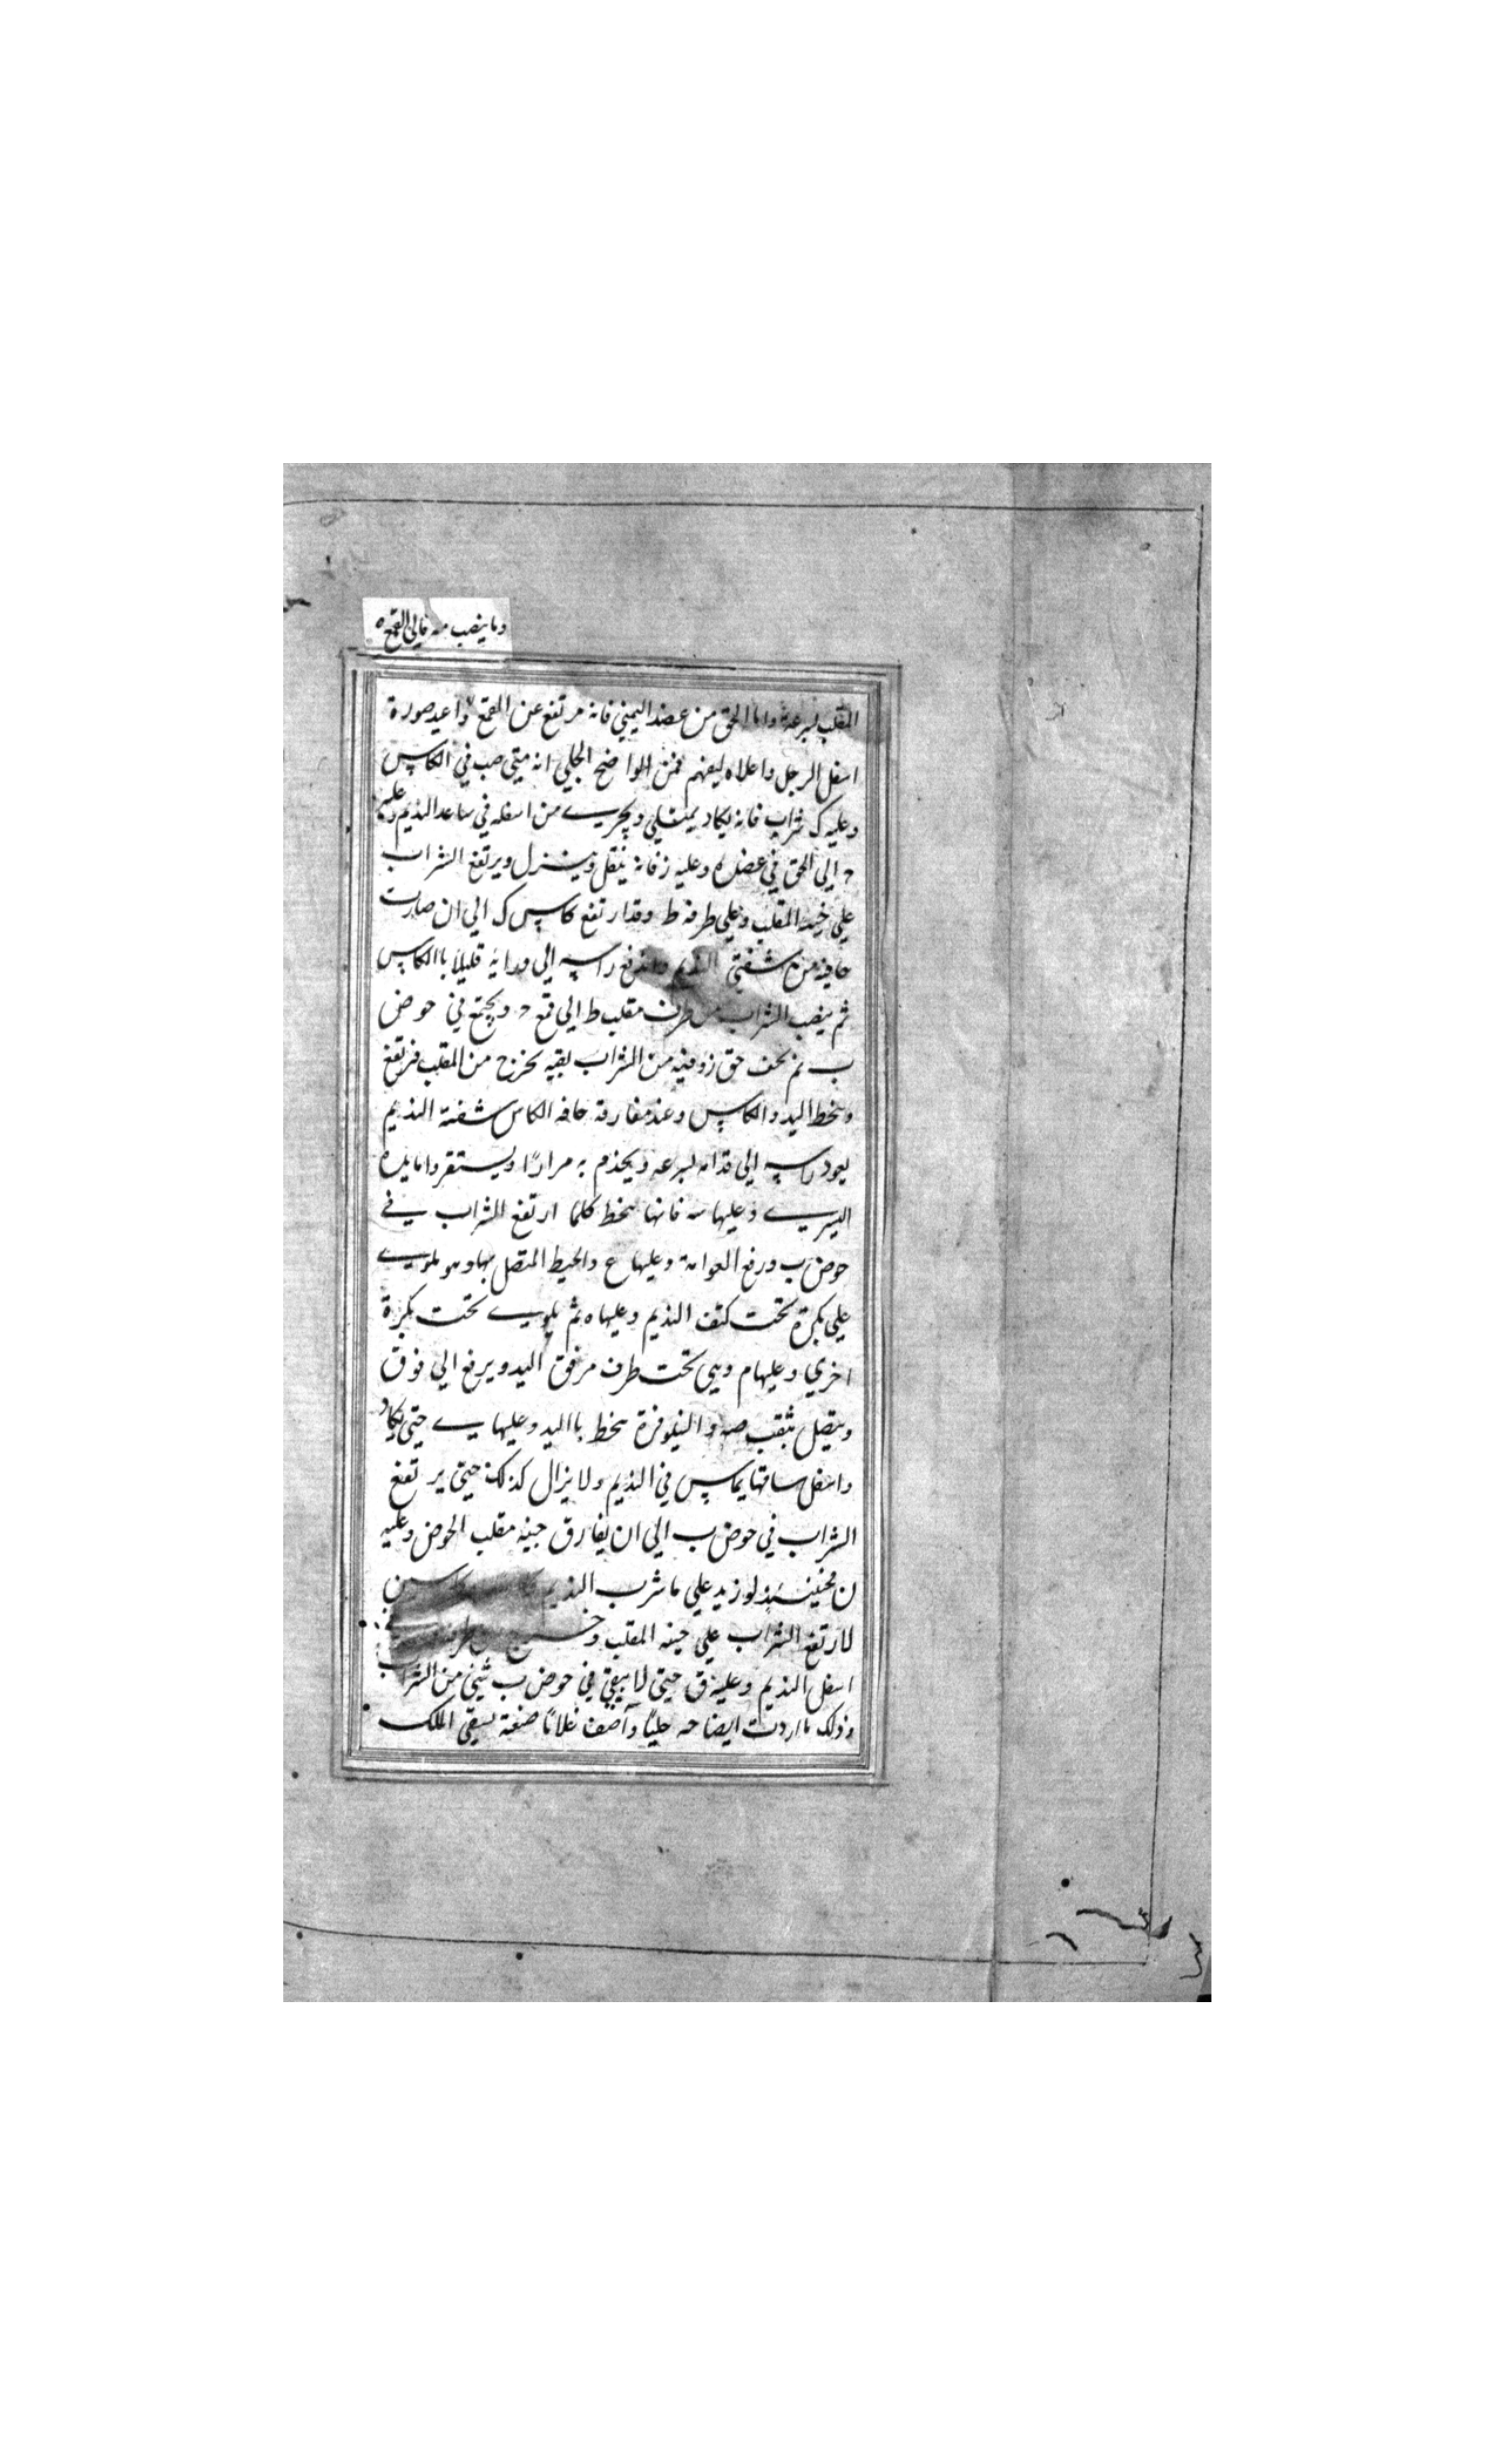 وما ينصب منه فالي القمع ه
المقلب لسرعة واما الحق من عضد اليمني فانه مرتفع عن القمع واعيد صورة
اسفل الرجل واعلاه ليفهم فمن الواضح الجلي انه متي صب في الكاس
وعليه ك شراب فانه يكاد يمتلي ويجري من اسفله في ساعد النديم وعليه
ح الي الحق في عضده وعليه ز فانه يثقل وينزل ويرتفع الشراب
علي خيه المقلب وعلي طرفه ط وقد ارتفع كاس ك الي ان صارت
حافته من شفتي النديم واندفع راسه الي ورايه قليلا باالكاس
ثم ينصب الشراب من طرف مقلب ط الي قمع ح ويجتمع في حوض
ب ثم يخف حق ز وفيه من الشراب بقيه تخرج من المقلب فترتفع
وينحط اليد والكاس وعند مفارقة حافه الكاس شفة النديم
يعود راسه الي قدامه لسرعه ويخدم به مرارًا ويستقر واما يده
اليسري وعليها سه فانها ينحط كلما ارتفع الشراب في
حوض ب ورفع العوامة وعليها ع والخيط المتصل بها وهو ملوي
علي بكرة تحت كتف النديم وعليها ه ثم يلوي تحت بكرة
اخري وعليها م وهي تحت طرف مرفق اليد ويرفع الي فوق
ويتصل بثقب صه والنيلوفرة ينحط بااليد وعليها ي حتي يكاد
واسفل ساقها يماس في النديم ولا يزال كذلك حتي يرتفع
الشراب في حوض ب الي ان يفارق جنيه مقلب الحوض وعليه
ن فحينئذ لو زيد علي ما شرب النديم
لارتفع الشراب علي حينه المقلب وخرج
اسفل النديم وعليه ق حتي لا يبقي في حوض ب شيئ من الشراب
وذلك ما اردت ايضاحه جليًا وآصف غلامًا صنعة يسقي الملك